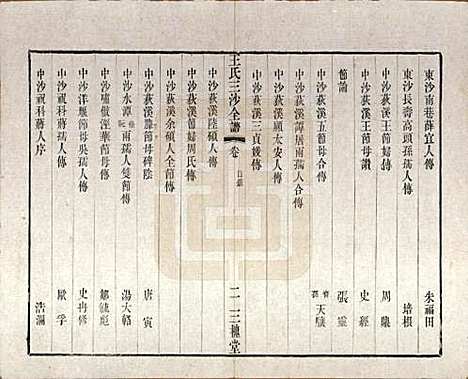 東沙南巷薛宜人傳 朱福田
東沙長壽高頭孫孺人傳 培根
中沙荻溪王節婦傳 周鑣
中沙荻溪王節母讚 史經
節諭 張靈
中沙荻溪五節母合傳 天驥
中沙荻溪譚居兩孺人合傳
中沙荻溪顧太安人傳
中沙荻溪三貞媛傳
王氏三沙全譜
卷 目錄
二 三槐堂
中沙荻溪陸碩人傳
中沙荻溪節婦周氏傳
中沙荻溪余碩人全節傳
中沙荻溪節母碑陰 唐寅
中沙水潭兩孺人雙節傳 湯大輅
中沙嘯傲涇華節母傳 鄒毓彪
中沙洋堰節母吳孺人傳 史冉修
中沙視科蔣孺人傳 嚴孚
中沙視科蔣人序 浩瀰